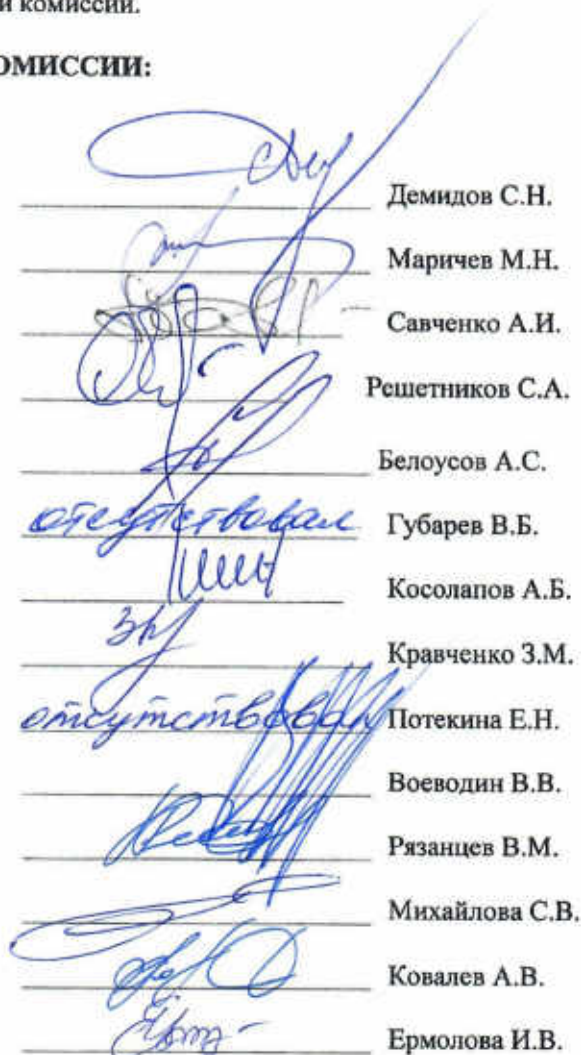 и комиссии.
ОМИССИИ:
Демидов С.Н.
Маричев М.Н.
Савченко А.И.
Решетников С.А.
Белоусов А.С.
отсутствовал Губарев В.Б.
Косолапов А.Б.
Кравченко З.М.
отсутствовал Потекина Е.Н.
Воеводин В.В.
Рязанцев В.М.
Михайлова С.В.
Ковалев А.В.
Ермолова И.В.